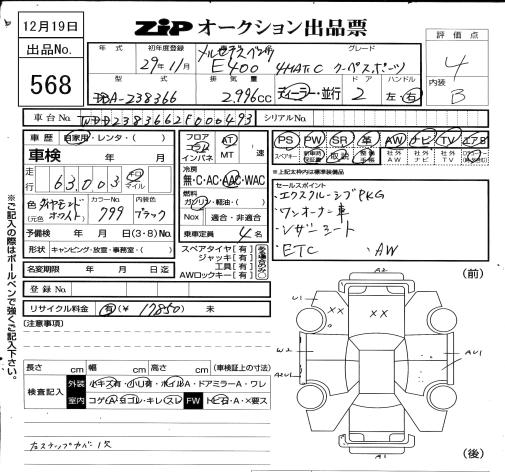 12月19日
出品No.
568
ZIP オークション出品票
評価点
4
内装
B
年式 初年度登録 グレード
29年 11月 メルセデスベンツ E400 4MATIC クーペスポーツ
型式 排気量 ドア ハンドル
DBA-238366 2,996cc ディーラー・並行 2 左・右
車台No. WDD2383662F000493 シリアルNo.
車歴 自家用・レンタ・( )
車検 年 月
走行 63,003 キロ マイル
色(元色) ダイヤモンドホワイト カラーNo. 799 内装色 ブラック
予備検 年 月 日(3・8)No.
形状 キャンピング・放宣・事務室・( )
名変期限 年 月 日迄
登録No.
リサイクル料金 有(¥ 17850 ) 未
フロア コラム インパネ AT MT 速
冷房 無・C・AC・AAC・WAC
燃料 ガソリン・軽油・( )
Nox 適合・非適合
乗車定員 4 名
スペアタイヤ[有]
ジャッキ[有]
工具[有]
AWロックキー[有]
ある場合のみ〇
PS PW SR 革 AW ナビ TV エアB
スペアキー 新車時保証書 取説 整備手帳 社外AW 社外ナビ 社外TV
※上記太枠内は標準装備品
セールスポイント
・エクスクルーシブPKG
・ワンオーナー車
・レザーシート
・ETC ・AW
(注意事項)
長さ cm 幅 cm 高さ cm (車検証上の寸法)
検査記入 外装 小キズ有・小U有・ホイルA・ドアミラーA・ワレ
室内 コゲA・ヨゴレ・キレ・スレ FW トビ石・A・X要ス
右ステップカバー欠
※ご記入の際はボールペンで強くご記入下さい。
(前)
A2
U1
XX
XX
W2
A2U1
AU1
(後)